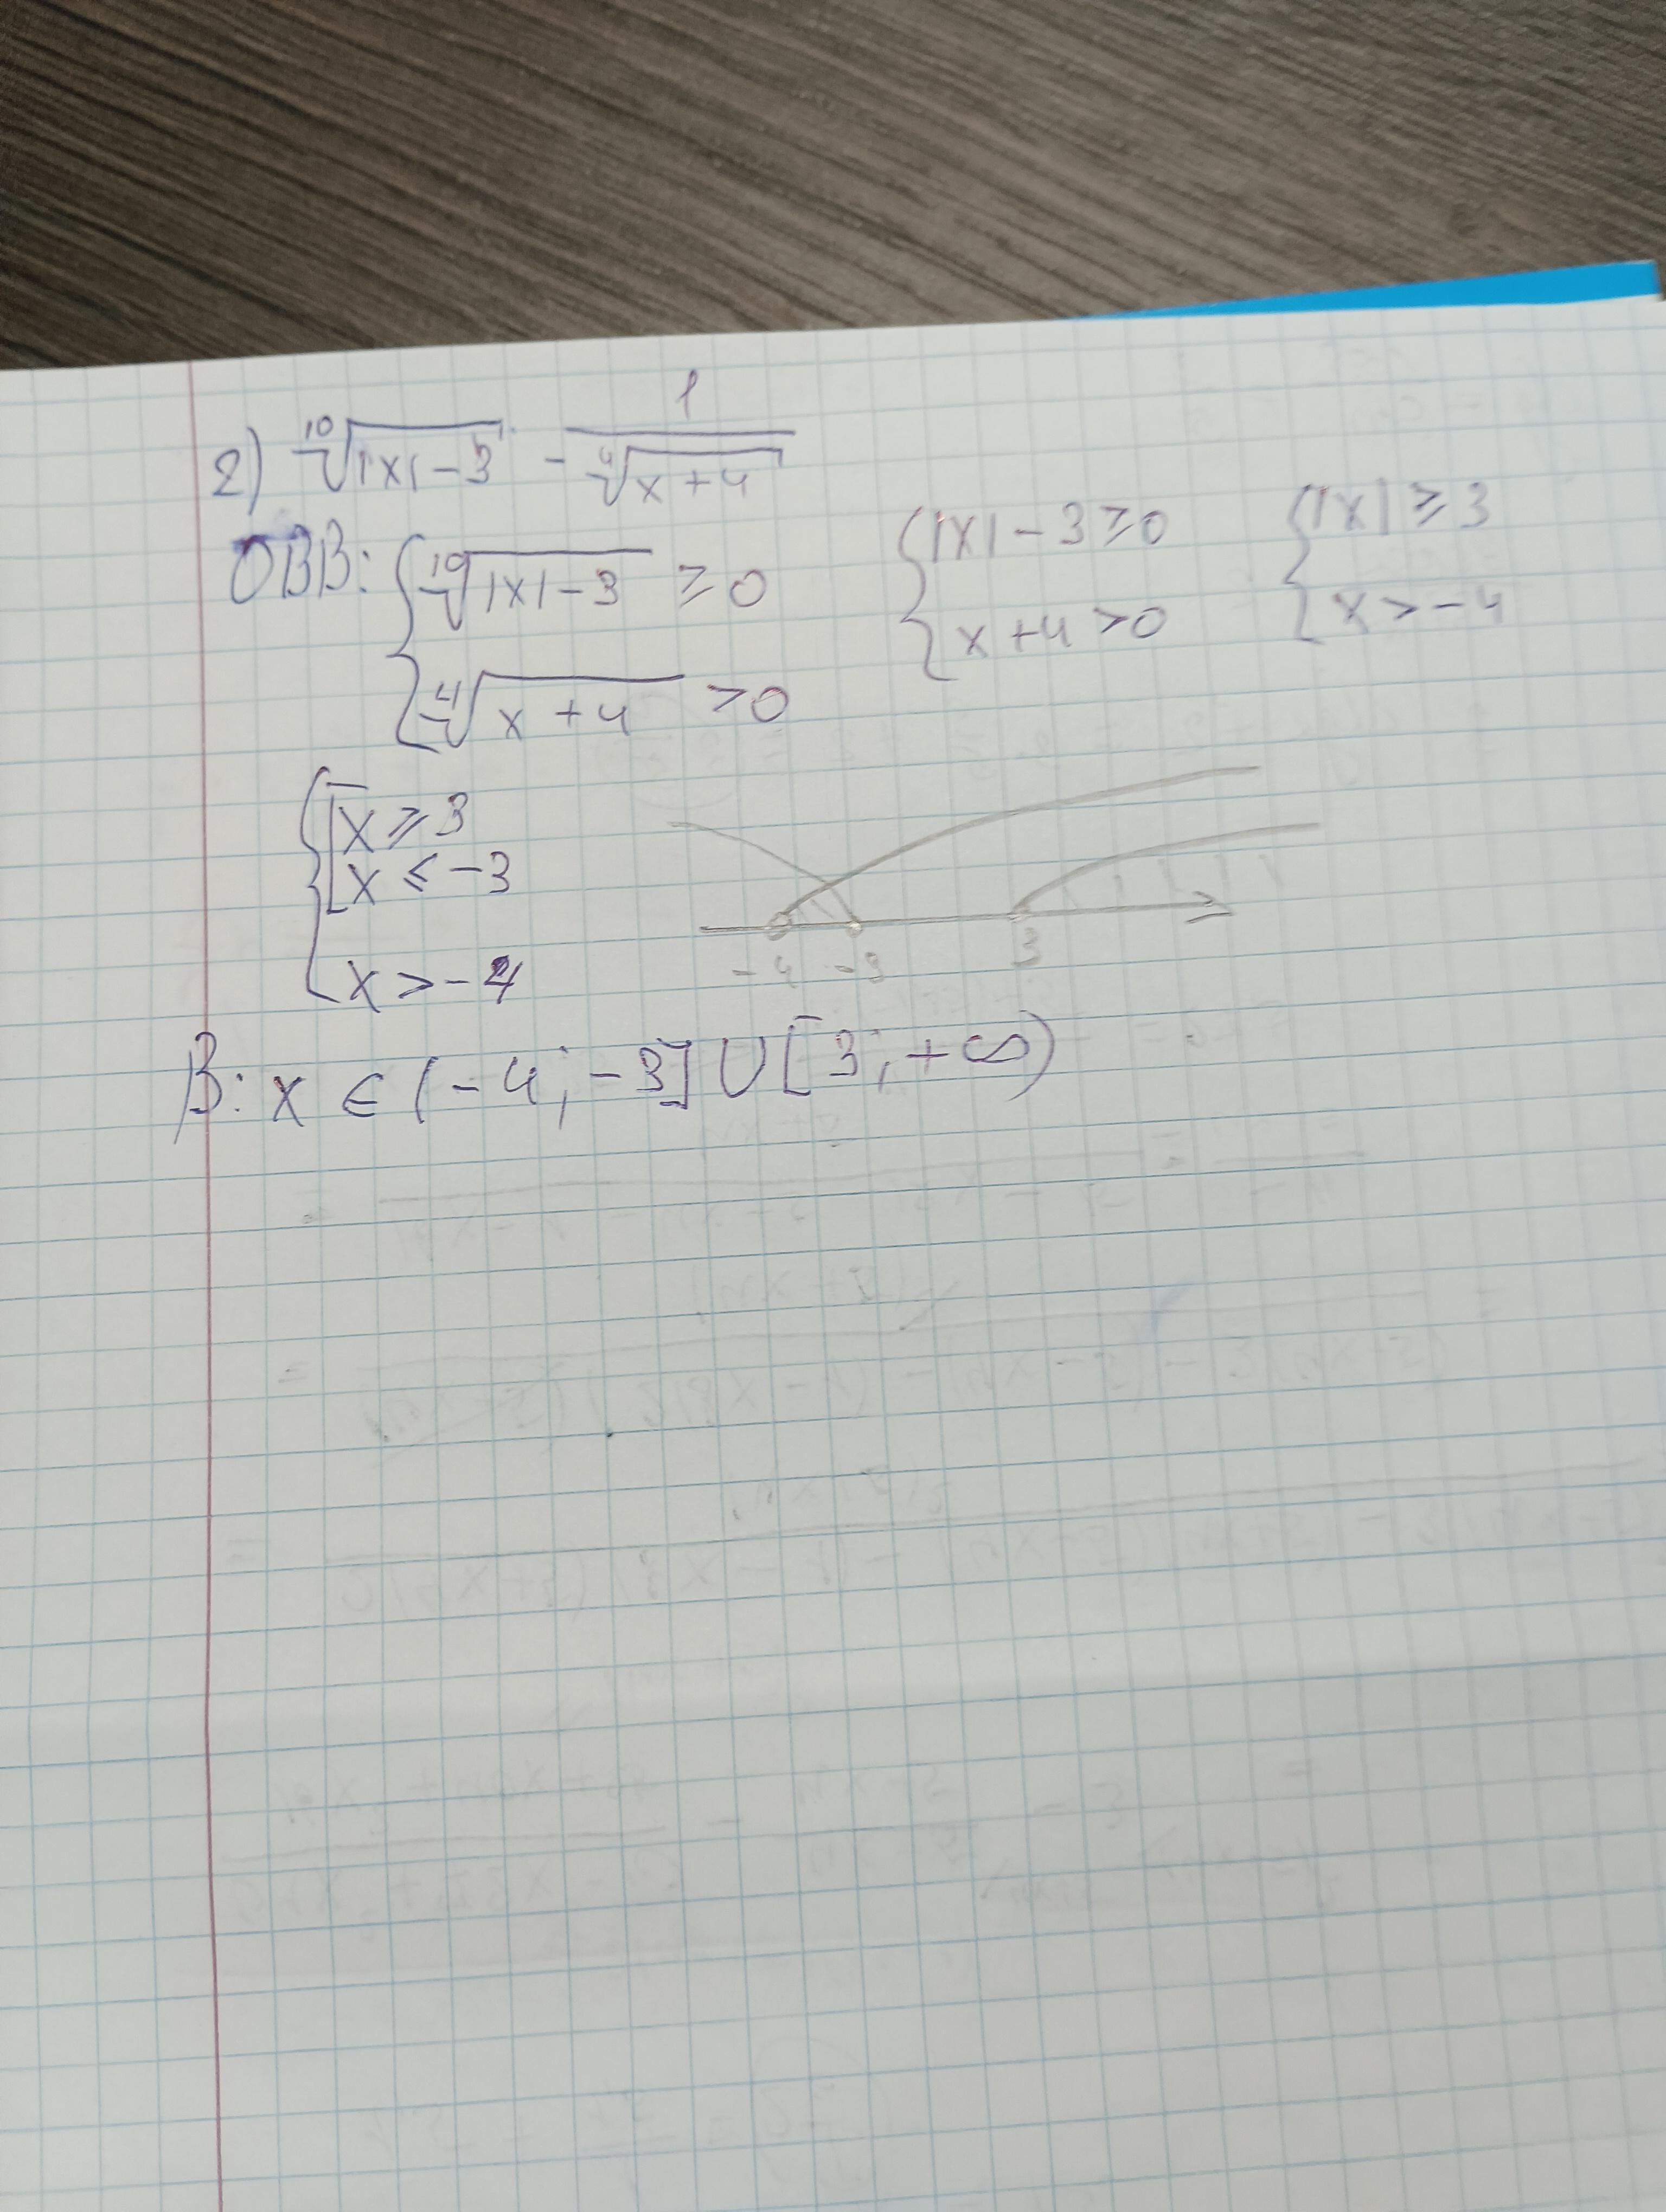 2) ¹⁰√(|x|-3) - 1/⁴√(x+4)
ОВВ: { ¹⁰√(|x|-3) ≥ 0 { |x| - 3 ≥ 0 { |x| ≥ 3
⁴√(x+4) > 0 x + 4 > 0 x > -4
{ [ x ≥ 3
x ≤ -3
x > -4
-4 -3 3
В: x ∈ (-4; -3] ∪ [3; +∞)